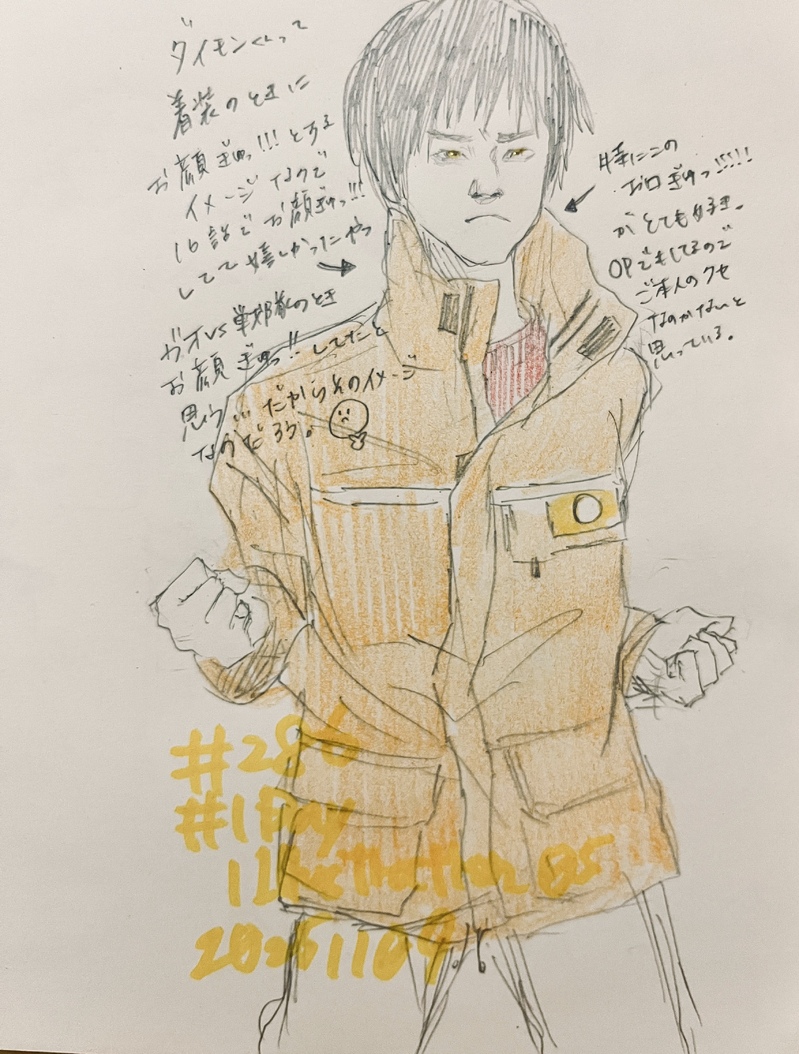 ダイモンくんって
着装のときに
お顔ぎゅっ!!!とする
イメージなので
16話でお顔ぎゅっ!!!
してて嬉しかったやつ
ガオVS 戦隊のとき
お顔ぎゅっ!!してたと
思う… だからそのイメージ
なのだろう。
特にこの
お口ぎゅっ!!!!!
がとても好き。
OPでもしてるので
ご本人のクセ
なのかな?と
思っている。
#286
#1Day
1Illustration